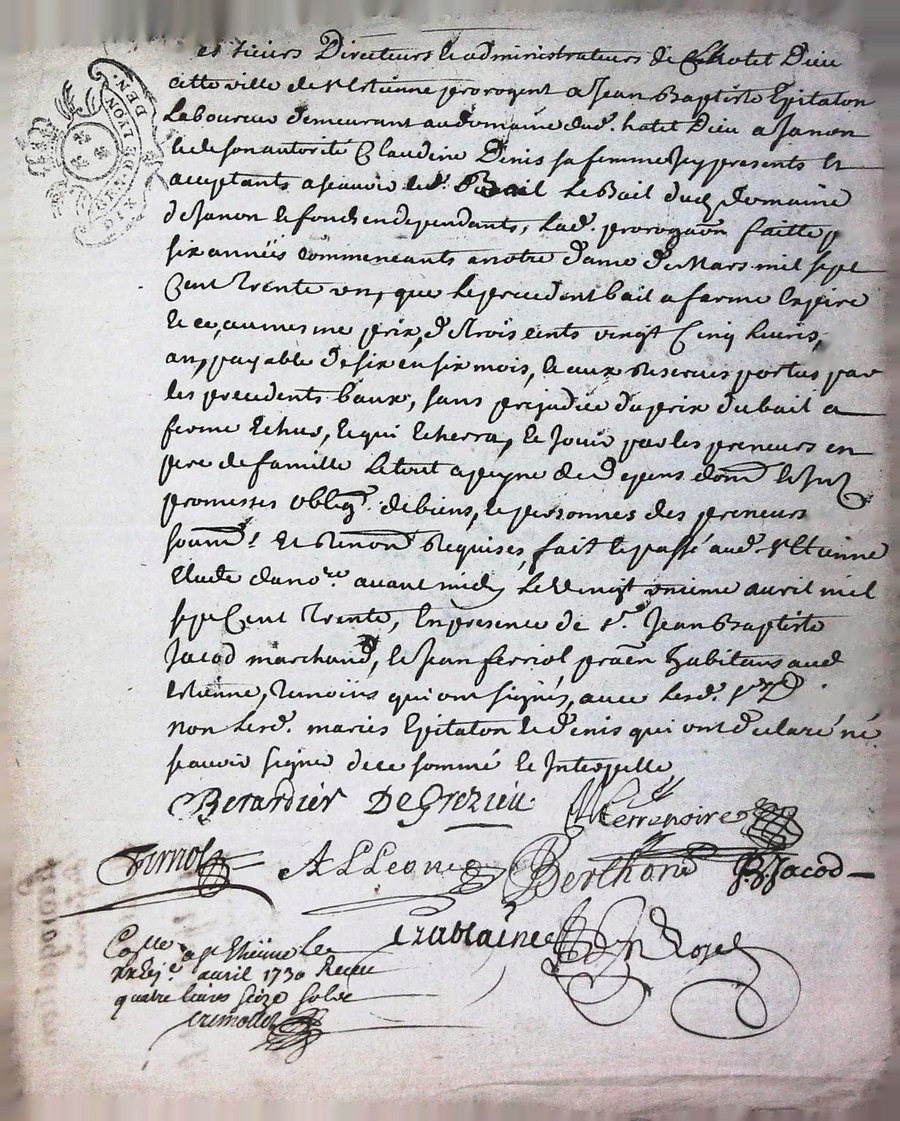 et sieurs Directeurs & administrateurs de L'hotel Dieu
cette ville de st Etienne prorogent a Jean Baptiste Epitalon
Laboureur demeurant au domaine dud. hotel Dieu a Janon
& de son autorité Claudine Denis sa femme Icy presents &
acceptants a scavoir Le Bail dud. Domaine
de Janon & fonds en dependants, Lad. prorogaon faitte p
six années commencants a notre dame de Mars mil sept
Cent Trente un, que Le precedent bail a farme Expire
& ce, au mesme prix, de trois cents vingt Cinq Livres,
an, payable de six en six mois, & aux Reserves portées par
Les precedents baux, sans prejudice du prix du bail a
ferme Echus, & qui Echerra, & Jouir par les preneurs en
pere de famille Le tout a peyne de Depens dom. &
promesses obblig. de biens, & personnes des preneurs
soum. & Renon. Requises, fait & passé aud. st Etienne
Etude du nore. avant midy Le vingt unieme avril mil
sept Cent Trente, En presence de sr. Jean Baptiste
Jacod marchand, & Jean ferriol praen habitans aud
Etienne, Temoins qui ont signés, avec Lesd.
non Lesd. mariés Epitalon & Denis qui ont declaré ne
scavoir signer de ce sommé & Interpellé
Berardier DeGrezieu Terrenoire
Ferriol ALLeon Berthon JB. Jacod
Crabtaine
Colle a st Etienne Le
avril 1730 Receu
quatre livres seize sols